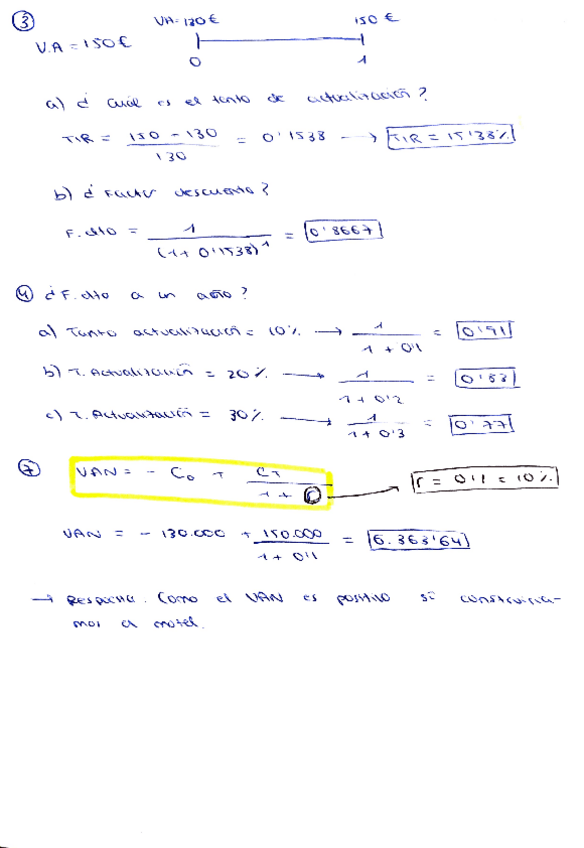 ③ VA=130€ 150 €
V.A = 150€
0 1
a) ¿ Cuál es el tanto de actualización ?
TIR = 150 - 130 / 130 = 0'1538 → TIR = 15'38%
b) ¿ Factor descuento ?
F. dto = 1 / (1+ 0'1538)^1 = 0'8667
④ ¿ F. dto a un año ?
a) Tanto actualización = 10% → 1 / 1 + 0'1 = 0'91
b) T. Actualización = 20% → 1 / 1 + 0'2 = 0'83
c) T. Actualización = 30% → 1 / 1 + 0'3 = 0'77
⑦ VAN = - C₀ + C₁ / 1 + r → r = 0'1 = 10%
VAN = - 130.000 + 150.000 / 1 + 0'1 = 6.363'64
→ Respuesta. Como el VAN es positivo sí construiría-
mos el motel.